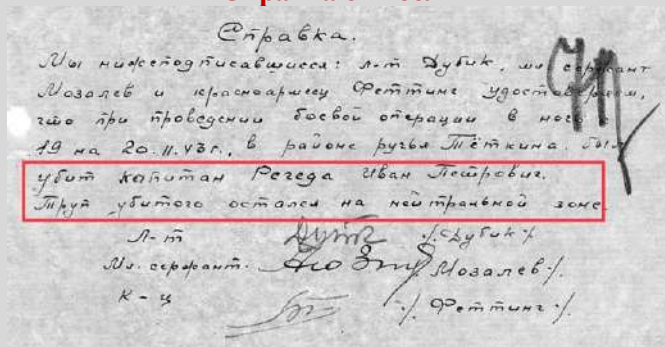 Справка.
Мы нижеподписавшиеся: л-т Дубик, мл сержант
Мозалев и красноармеец Феттинг удостоверяем,
что при проведении боевой операции в ночь с
19 на 20.11.43г., в районе ручья Тёткина. был
убит капитан Регеда Иван Петрович.
Труп убитого остался на нейтральной зоне.
Л-т /Дубик/
Мл. сержант. /Мозалев/.
К-ц /Феттинг/.